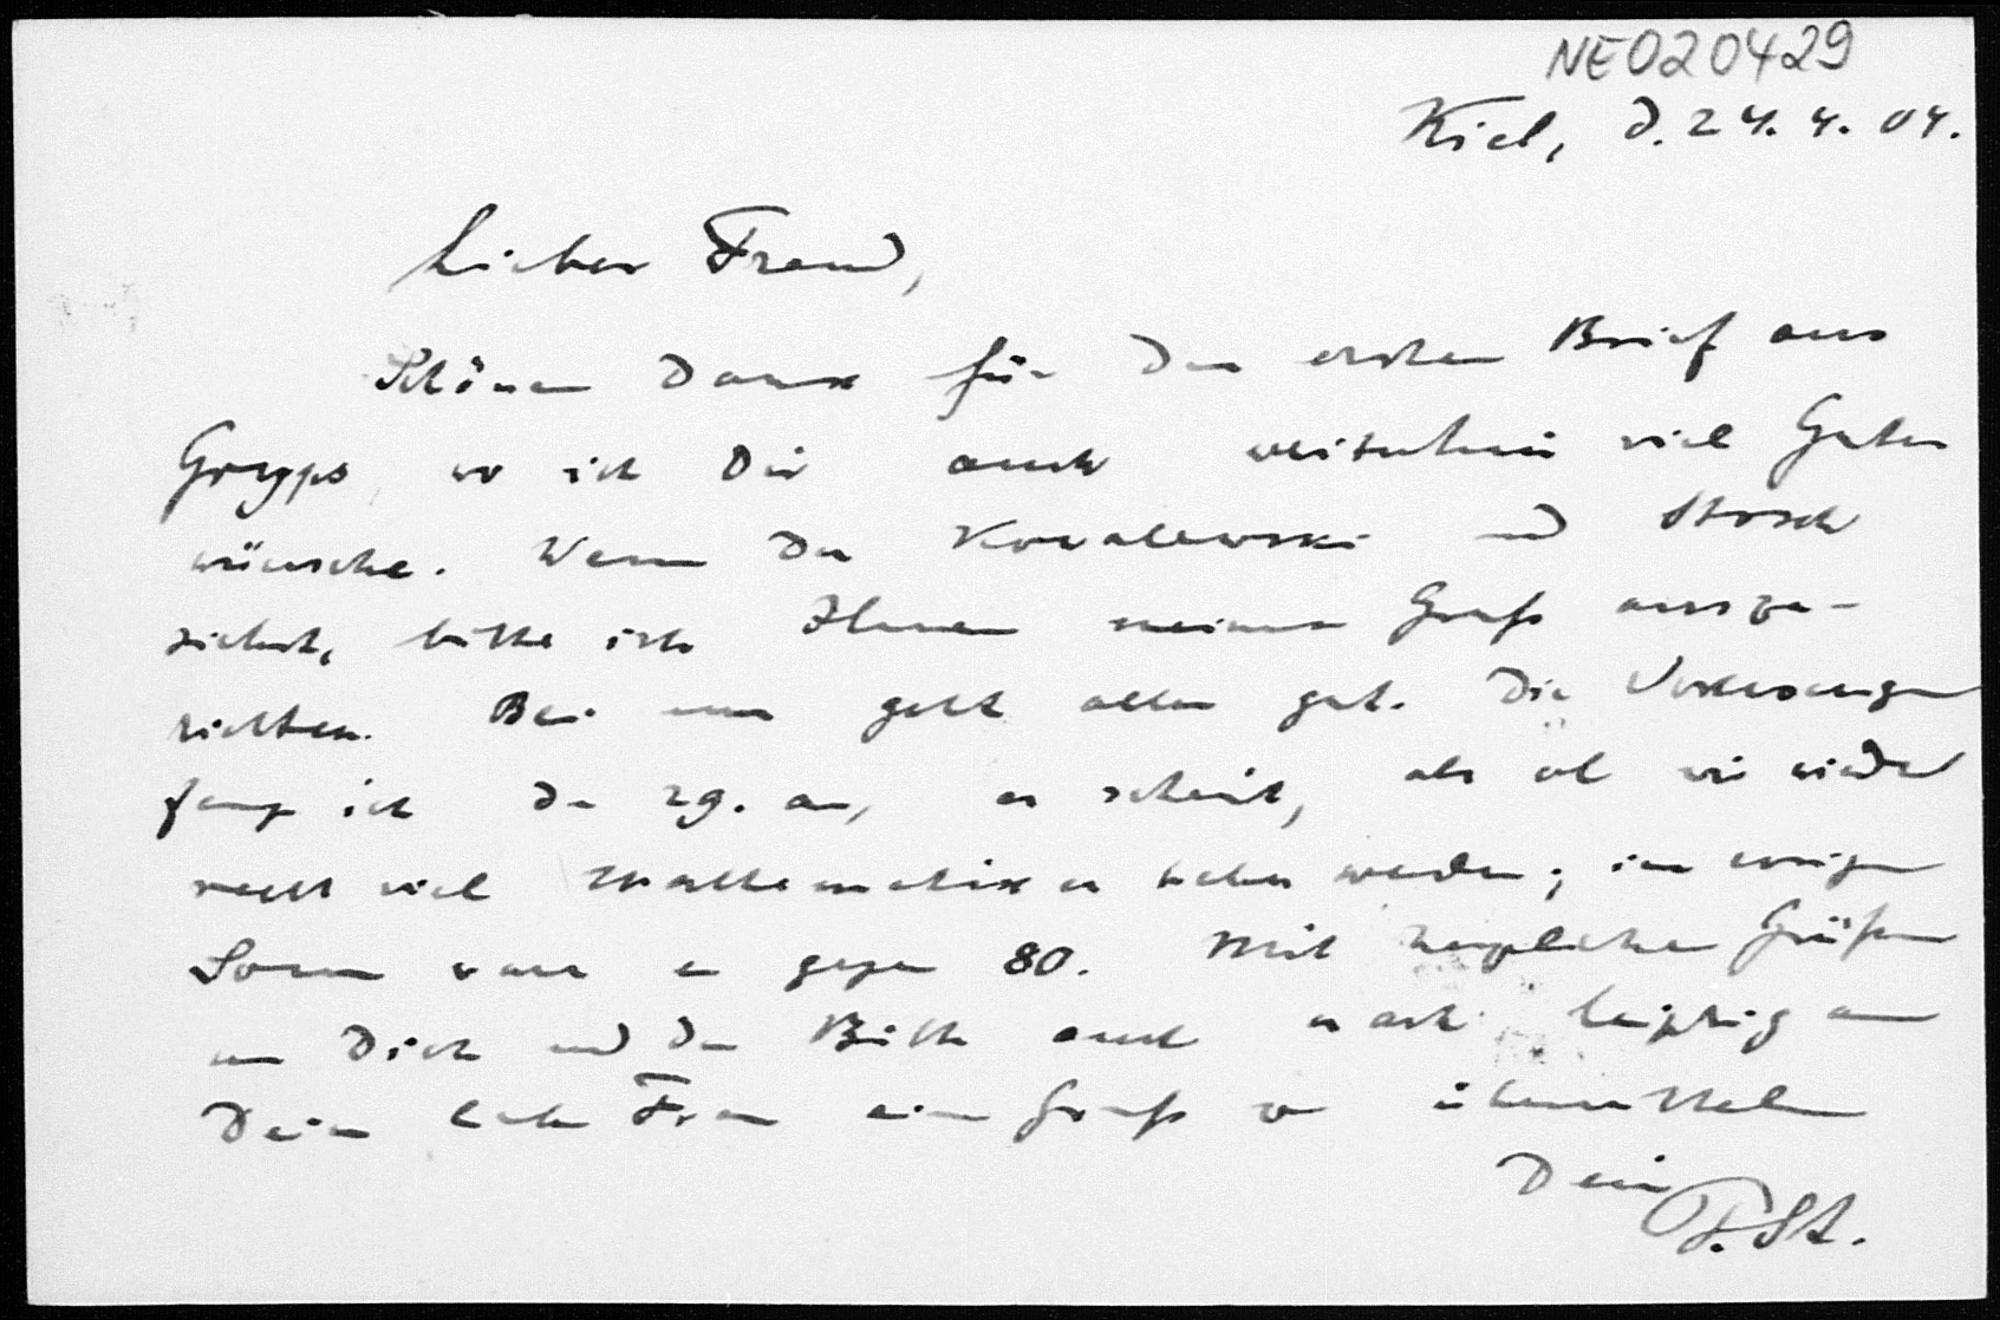 NE020429
Kiel, d. 24. 4. 04.
Lieber Freund,
Schönen Dank für den ersten Brief aus
Grypps, wo ich Dir auch weiterhin viel Gutes
wünsche. Wenn Du Kowalewski und
siehst, bitte ich Ihnen meinen Gruß auszu-
richten. Bei uns geht alles gut. Die Vorlesungen
fange ich den 29. an, es scheint, als ob wir wieder
recht viel Mathematiker haben werden; im vorigen
Sem waren es gegen 80. Mit herzlichen Grüßen
an Dich und der Bitte auch nach Leipzig an
Deine liebe Frau einen Gruß zu übermitteln
Dein
P. St.